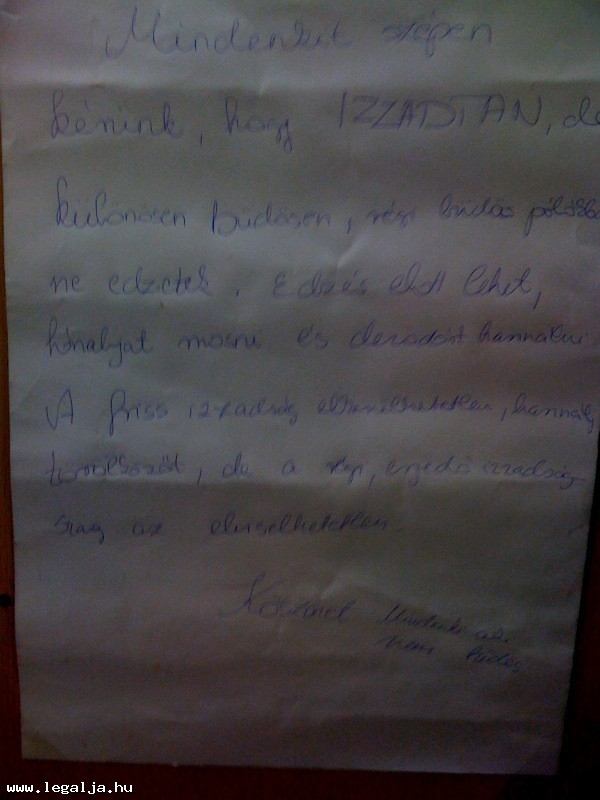 Mindenkit szépen
kérünk, hogy IZZADTAN, de
különösen büdösen, régi büdös pólóba
ne edzetek. Edzés előtt lehet,
hónalyat mosni és dezodort hannálni
A friss izzadság hannálj
törölközőt, de a régi, erjedő izzadság
szag az elviselhetetlen.
Köszönet Mindenki aki
nem büdös
www.legalja.hu